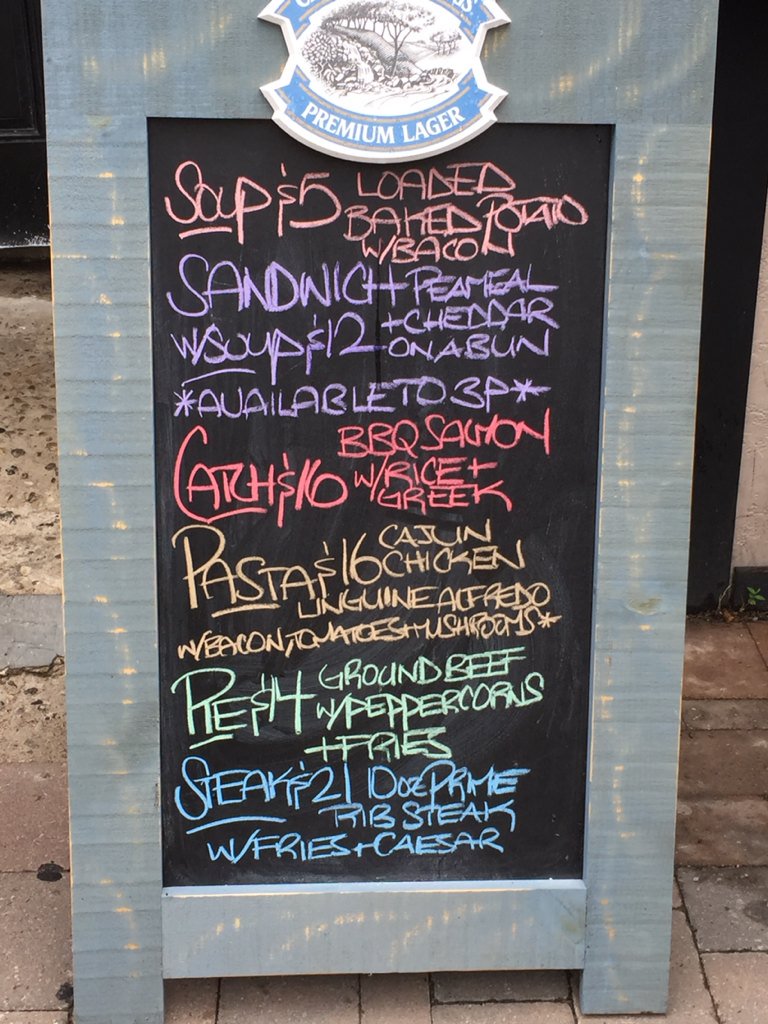 PREMIUM LAGER
SOUP $5 LOADED
BAKED POTATO
W/BACON
SANDWICH PEAMEAL
W/SOUP $12 + CHEDDAR
ON A BUN
*AVAILABLE TO 3P*
CATCH $16 BBQ SALMON
W/RICE +
GREEK
PASTA $16 CAJUN
CHICKEN
LINGUINE ALFREDO
W/BACON, TOMATOES + MUSHROOMS*
PIE $14 GROUND BEEF
W/PEPPERCORNS
+ FRIES
STEAK $21 10oz PRIME
RIB STEAK
W/FRIES + CAESAR